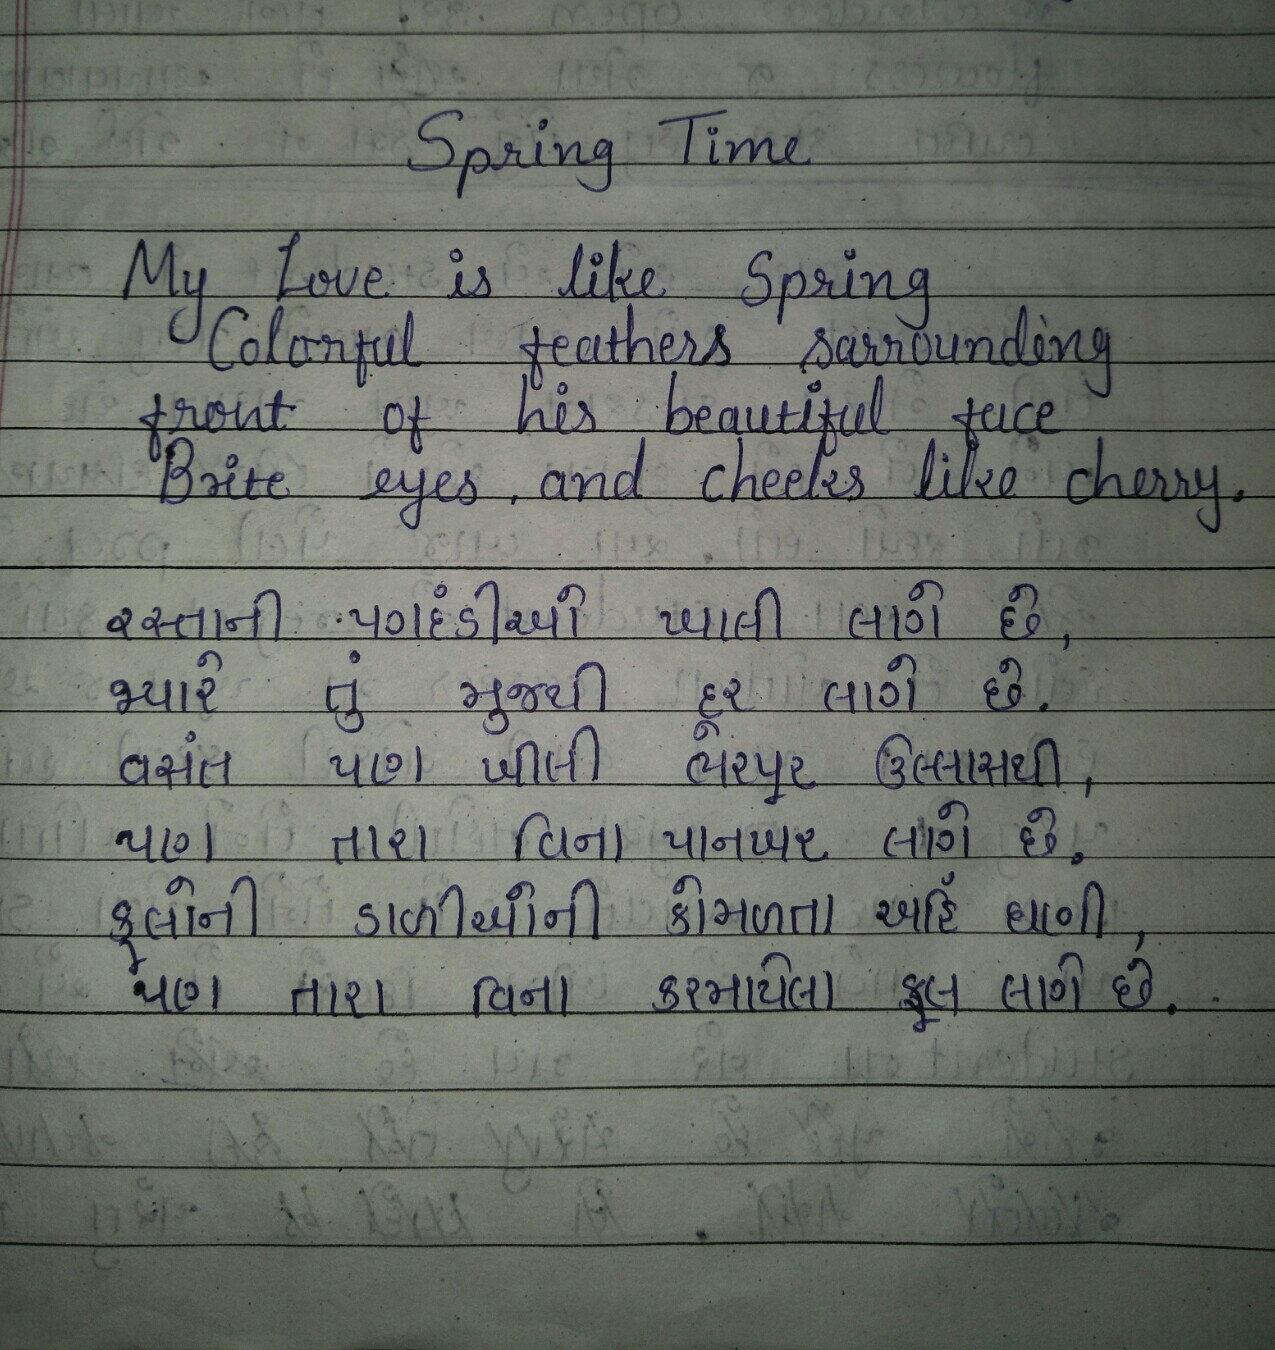 Spring Time
My Love is like Spring
Colorful feathers sarrounding
front of his beautiful face
Brite eyes, and cheeks like cherry.
રસ્તાની પગદંડીઓ ખાલી લાગે છે,
જ્યારે તું મુજથી દૂર લાગે છે.
વસંત પણ ખીલી ભરપૂર ઉલ્લાસથી,
પણ તારા વિના પાનખર લાગે છે.
ફૂલોની ડાળીઓની કોમળતા અહિં ઘણી,
પણ તારા વિના કરમાયેલા ફૂલ લાગે છે.